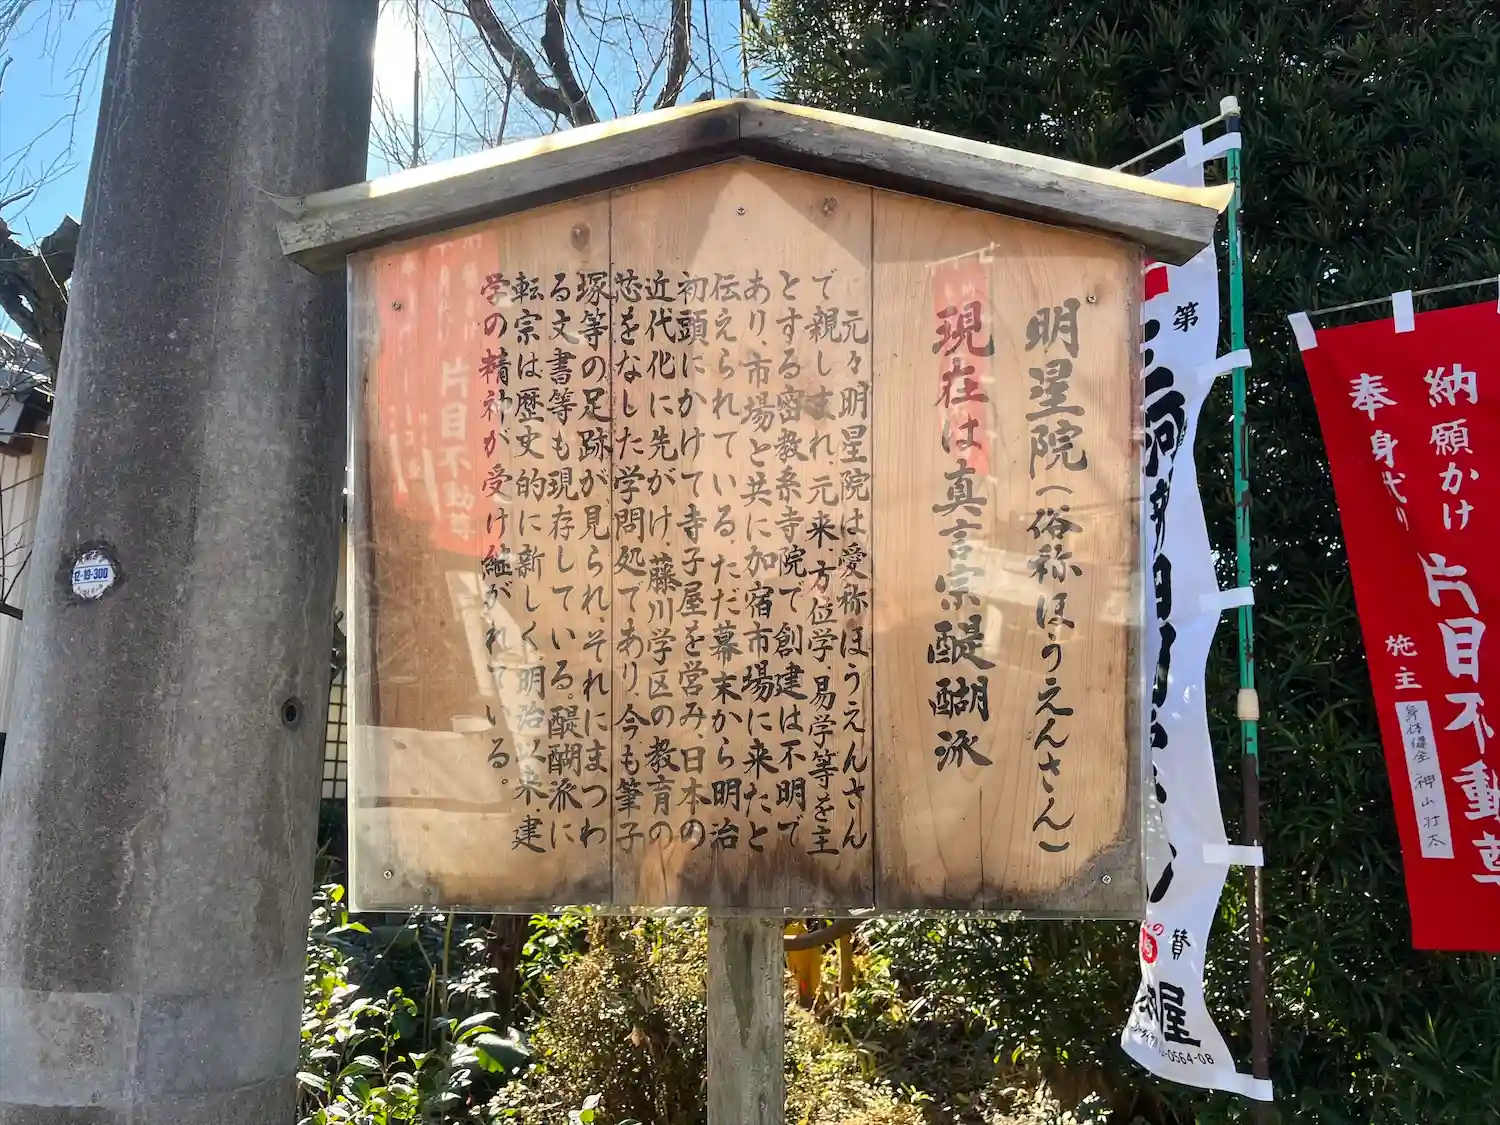 明星院（俗称ほうえんさん）
現在は真言宗醍醐派
元々明星院は愛称ほうえんさん
で親しまれ、元来、方位学、易学等を主
とする密教系寺院て創建は不明で
あり、市場と共に加宿市場に来たと
伝えられている。ただ幕末から明治
初頭にかけて寺子屋を営み日本の
近代化に先がけ、藤川学区の教育の
芯をなした学問処てあり、今も筆子
塚等の足跡が見られ、それにまつわ
る文書等も現存している。醍醐派に
転宗は歴史的に新しく明治以来、建
学の精神が受け継がれている。
第
賛
0564-08
納願かけ
奉身代り
片目不動尊
施主
身体健全 神山壮太
片目不動尊
12-19-300